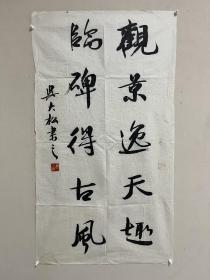 觀景逸天趣
臨碑得古風
吳大松書之